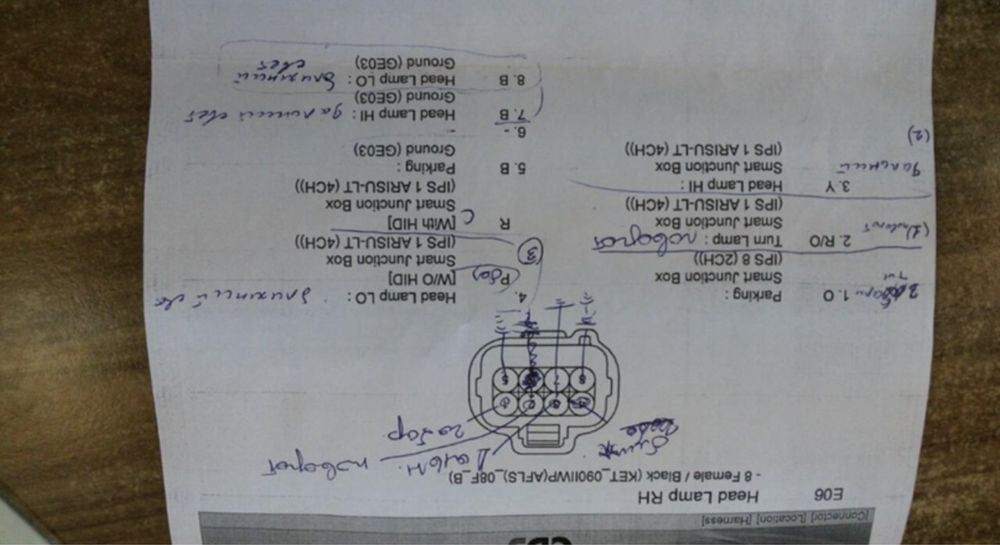 [Connector] [Location] [Harness]
E06 Head Lamp RH
- 8 Female / Black (KET_090IIWP(AFLS)_08F_B)
поворот
габар
1. O Parking :
Smart Junction Box
(IPS 8 (2CH))
2. R/O Turn Lamp : поворот
Smart Junction Box
(IPS 1 ARISU-LT (4CH))
3. Y Head Lamp HI :
Smart Junction Box
(IPS 1 ARISU-LT (4CH))
дальний
(2)
4. Head Lamp LO : ближний свет
[W/O HID]
Smart Junction Box
(IPS 1 ARISU-LT (4CH))
3
R [With HID] C
Smart Junction Box
(IPS 1 ARISU-LT (4CH))
5. B Parking :
Ground (GE03)
6. - -
7. B Head Lamp HI : дальний свет
Ground (GE03)
8. B Head Lamp LO : ближний свет
Ground (GE03)